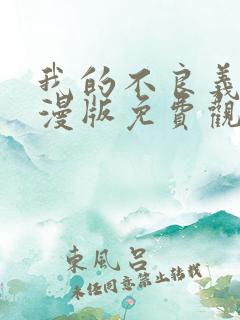 我的不良義
漫版免費觀
東風呂
未经同意禁止转载